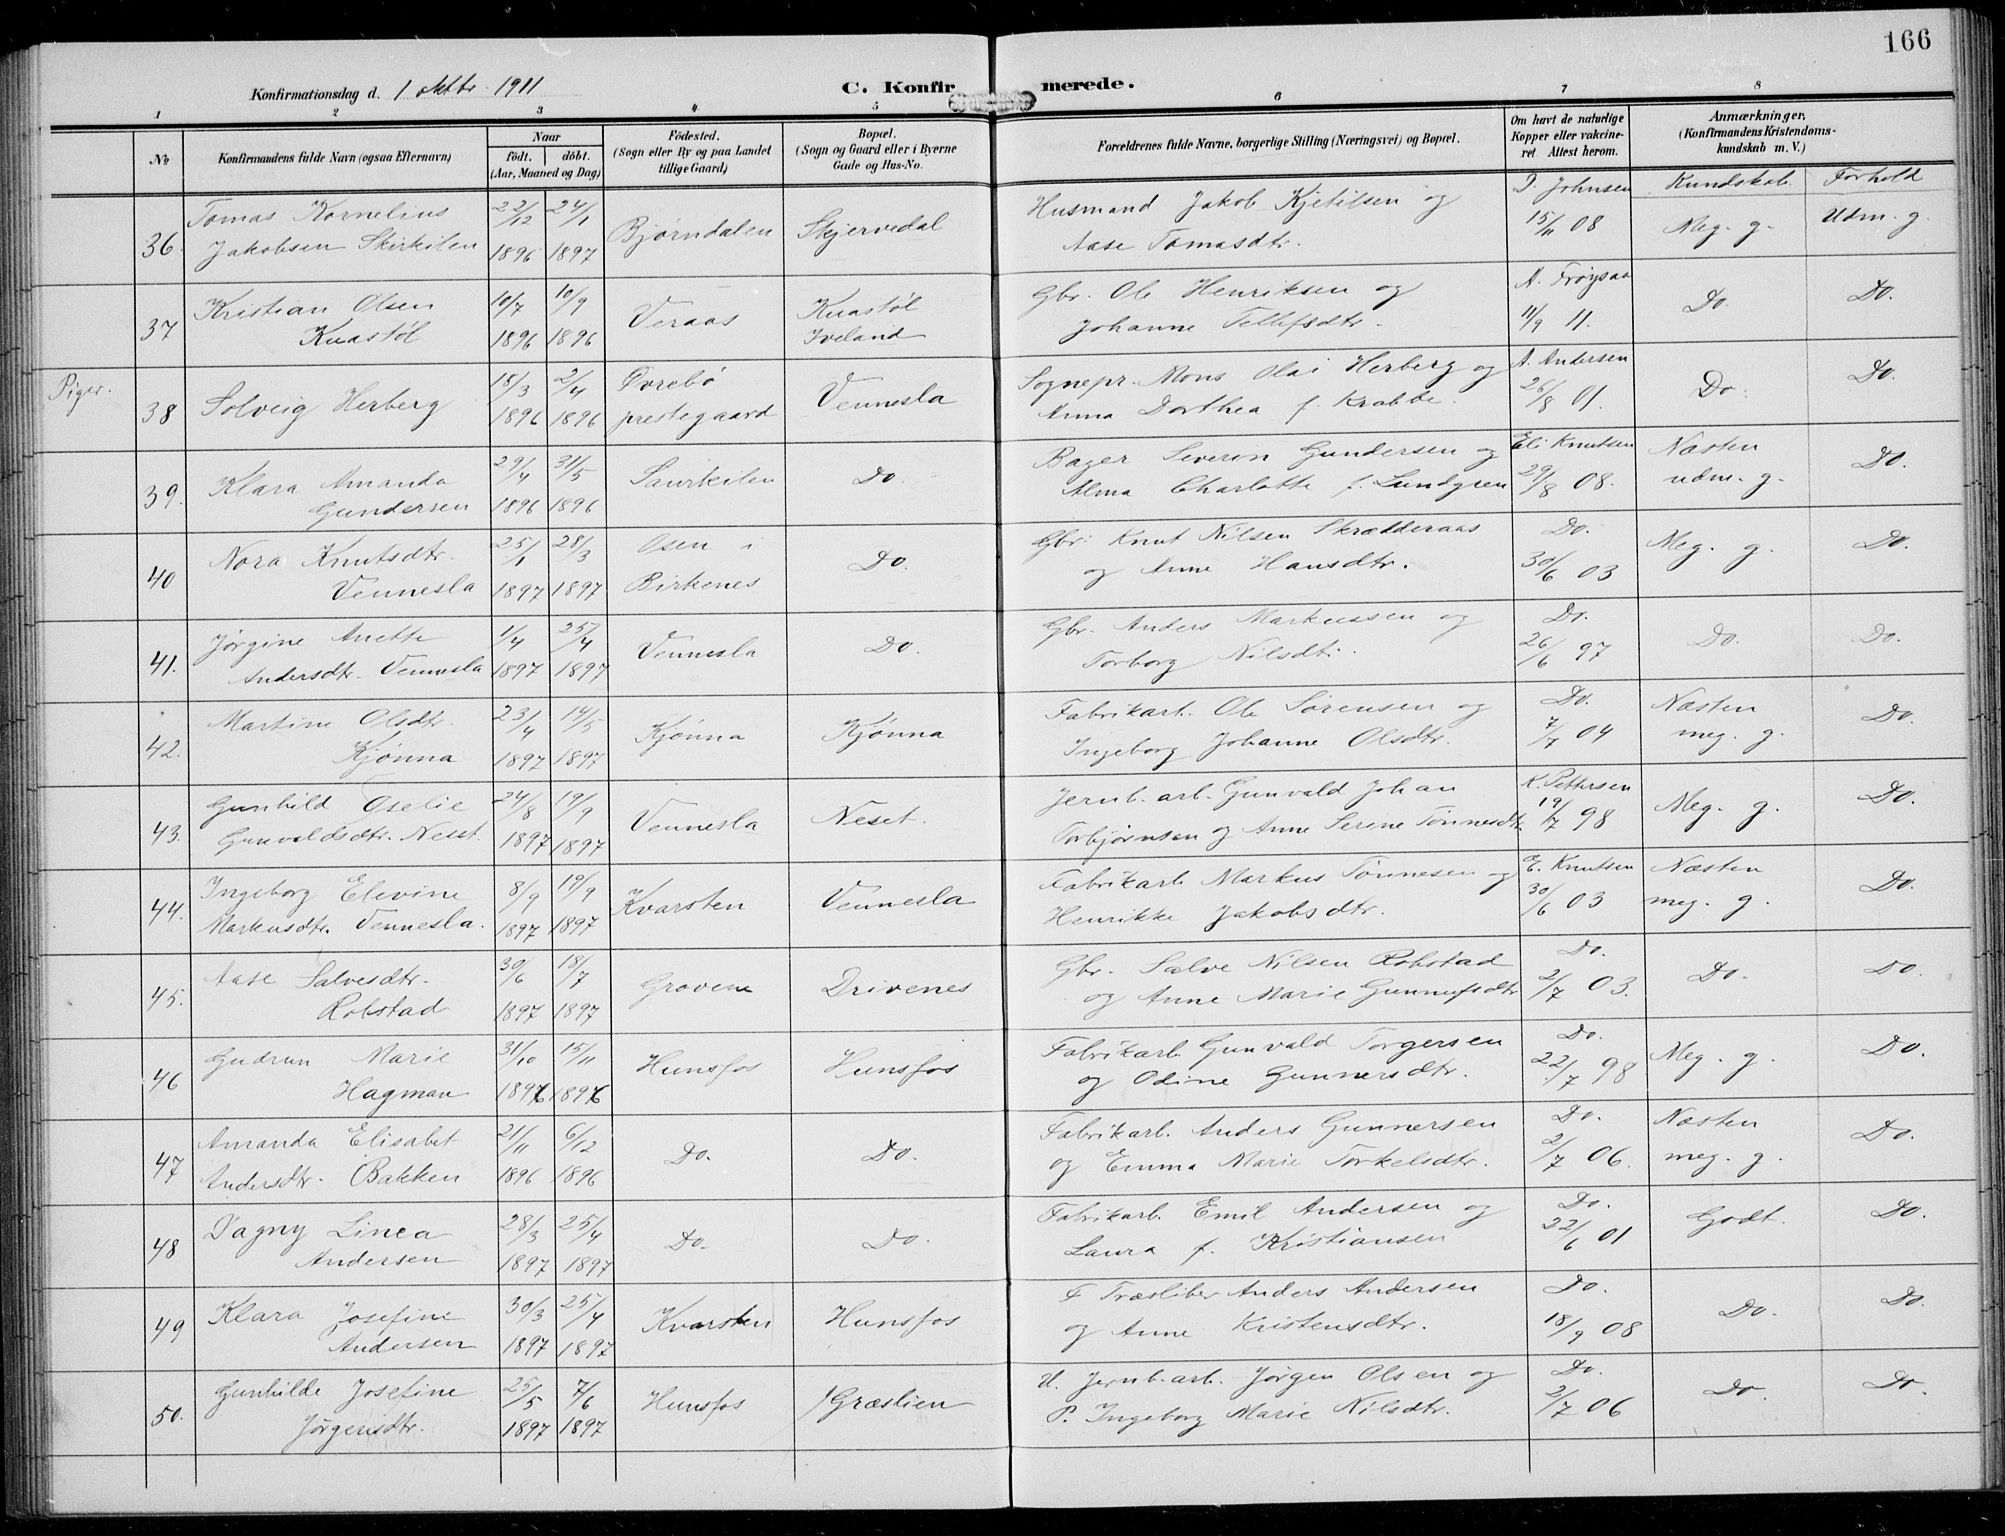 166
Konfirmationsdag d. 1 oktbr. 1911
C. Konfirmerede.
1 2 3 4 5 6 7 8
No
Konfirmandens fulde Navn (ogsaa Efternavn)
Naar
født. døbt.
(Aar, Maaned og Dag)
Fødested.
(Sogn eller By og paa Landet
tillige Gaard)
Bopæl.
(Sogn og Gaard eller i Byerne
Gade og Hus-No.
Forældrenes fulde Navne, borgerlige Stilling (Næringsvei) og Bopæl.
Om havt de naturlige
Kopper eller vakcine-
ret Attest herom.
Anmærkninger,
(Konfirmandens Kristendoms-
kundskab m. V.)
Kundskab. Forhold
36. Tomas Kornelius 22/12 24/1 Bjørndalen Skjervedal Husmand Jakob Kjetilsen og J. Johnsen Meg. g. Udm. g.
Jakobsen Skirkilen 1896 1897 Aase Tomasdtr. 15/11 08
37 Kristian Olsen 10/7 10/9 Veraas Knastøl Gbr. Ole Henriksen og A. Frøysaa Do. Do.
Knastøl 1896 1896 Iveland Johanne Tellefsdtr. 11/9 11.
Piger.
38 Solveig Herberg 15/3 2/4 Øvrebø Vennesla Sognepr. Mons Olai Herberg og A. Andersen Do. Do.
1896 1896 prestegaard Anna Dorthea f. Krabbe. 26/8 01.
39. Klara Amanda 29/4 31/5 Saurkilen Do. Bager Severin Gundersen og Eli Knutsen Næsten Do.
Gundersen 1896 1896 Alma Charlotte f. Lundgren 29/8 08. udm. g.
40 Nora Knutsdtr. 25/1 28/3 Osen i Do. Gbr. Knut Nilsen Skrædderaas Do. Meg. g. Do.
Vennesla 1897 1897 Birkenes og Anne Hansdtr. 30/6 03
41. Jørgine Anette 1/4 25/4 Vennesla Do. Gbr. Anders Markussen og Do. Do. Do.
Andersdtr. Vennesla 1897 1897 Torborg Nilsdtr. 26/6 97
42. Martine Olsdtr. 23/4 14/5 Kjønna Kjønna Fabrikarb. Ole Sørensen og Do. Næsten Do.
Kjønna 1897 1897 Ingeborg Johanne Olsdtr. 7/7 04 meg. g.
43. Gunhild Oselie 24/8 19/9 Vennesla Neset. Jernb. arb. Gunvald Johan K. Pettersen Meg. g. Do.
Gunvaldsdtr. Neset. 1897 1897 Torbjørnsen og Anne Serine Tønnesdtr. 19/7 98
44. Ingeborg Elevine 8/9 19/9 Kvarsten Vennesla Fabrikarb. Markus Tønnesen og E. Knutsen Næsten Do.
Markusdtr. Vennesla. 1897 1897 Henrikke Jakobsdtr. 30/6 03 meg. g.
45. Aase Salvesdtr. 30/6 18/7 Grovene Drivenes Gbr. Salve Nilsen Robstad Do. Do. Do.
Robstad 1897 1897 og Anne Marie Gunnufsdtr 2/7 03.
46 Gudrun Marie 31/10 15/11 Hunsfos Hunsfos Fabrikarb. Gunvald Torgersen Do. Meg. g. Do.
Hagman 1896 1896 og Odine Gunnersdtr. 22/7 98
47 Amanda Elisabet 21/11 6/12 Do. Do. Fabrikarb. Anders Gunnersen Do. Næsten Do.
Andersdtr. Bakken 1896 1896 og Emma Marie Torkelsdtr. 2/7 06. meg. g.
48 Dagny Linea 28/3 25/4 Do. Do. Fabrikarb. Emil Andersen og Do. Godt. Do.
Andersen 1897 1897 Laura f. Kristiansen 22/6 01
49 Klara Josefine 30/3 25/4 Kvarsten Hunsfos F Træsliber Anders Andersen Do. Do. Do.
Andersen 1897 1897 og Anne Kristensdtr. 18/9 08
50. Gunhilde Josefine 25/5 7/6 Hunsfos Græslien U. Jernb. arb. Jørgen Olsen og Do. Do. Do.
Jørgensdtr. 1897 1897 P. Ingeborg Marie Nilsdtr. 2/7 06